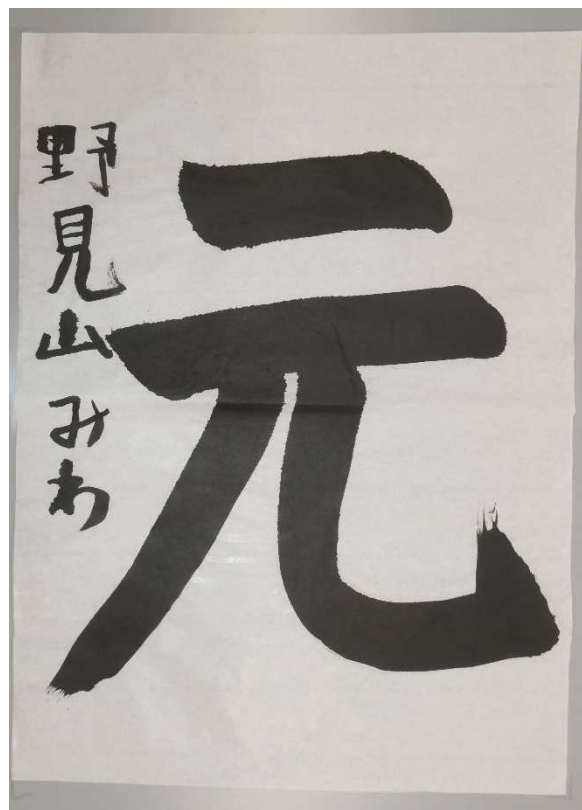 元
野見山みわ